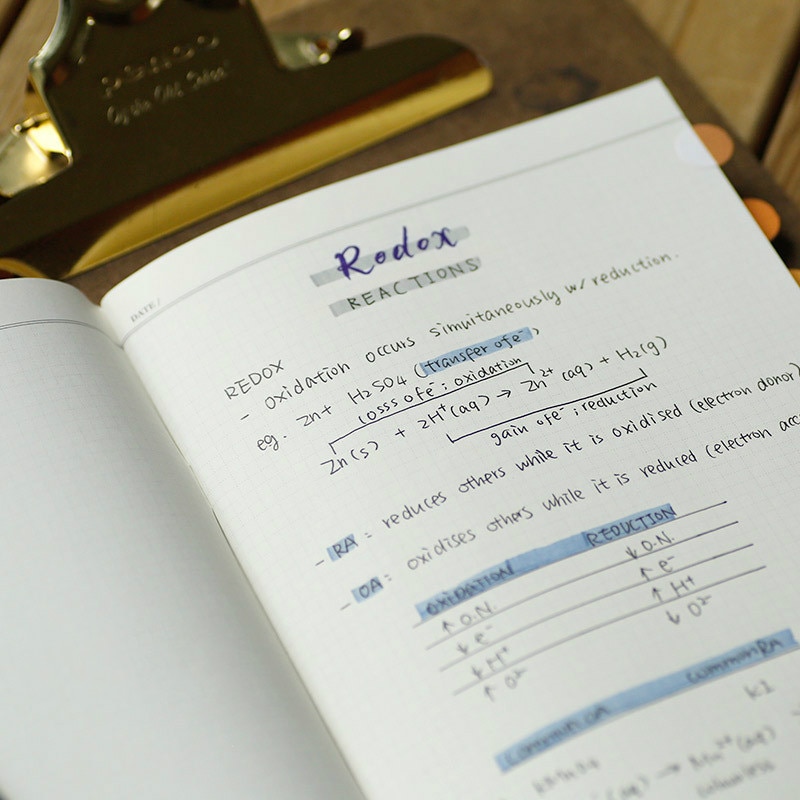 DATE/
Redox
REACTIONS
REDOX
- oxidation occurs simultaneously w/ reduction.
eg. Zn + H2SO4 (transfer of e⁻)
losss of e⁻ ; oxidation
Zn(s) + 2H⁺(aq) → Zn²⁺(aq) + H2(g)
gain of e⁻ ; reduction
- RA = reduces others while it is oxidised (electron donor)
- OA = oxidises others while it is reduced (electron
OXIDATION REDUCTION
↑ O.N. ↓ O.N.
↓ e⁻ ↑ e⁻
↓ H⁺ ↑ H⁺
↑ O²⁻ ↓ O²⁻
common OA common RA
KI
(aq) → Mn²⁺(aq)
colourless